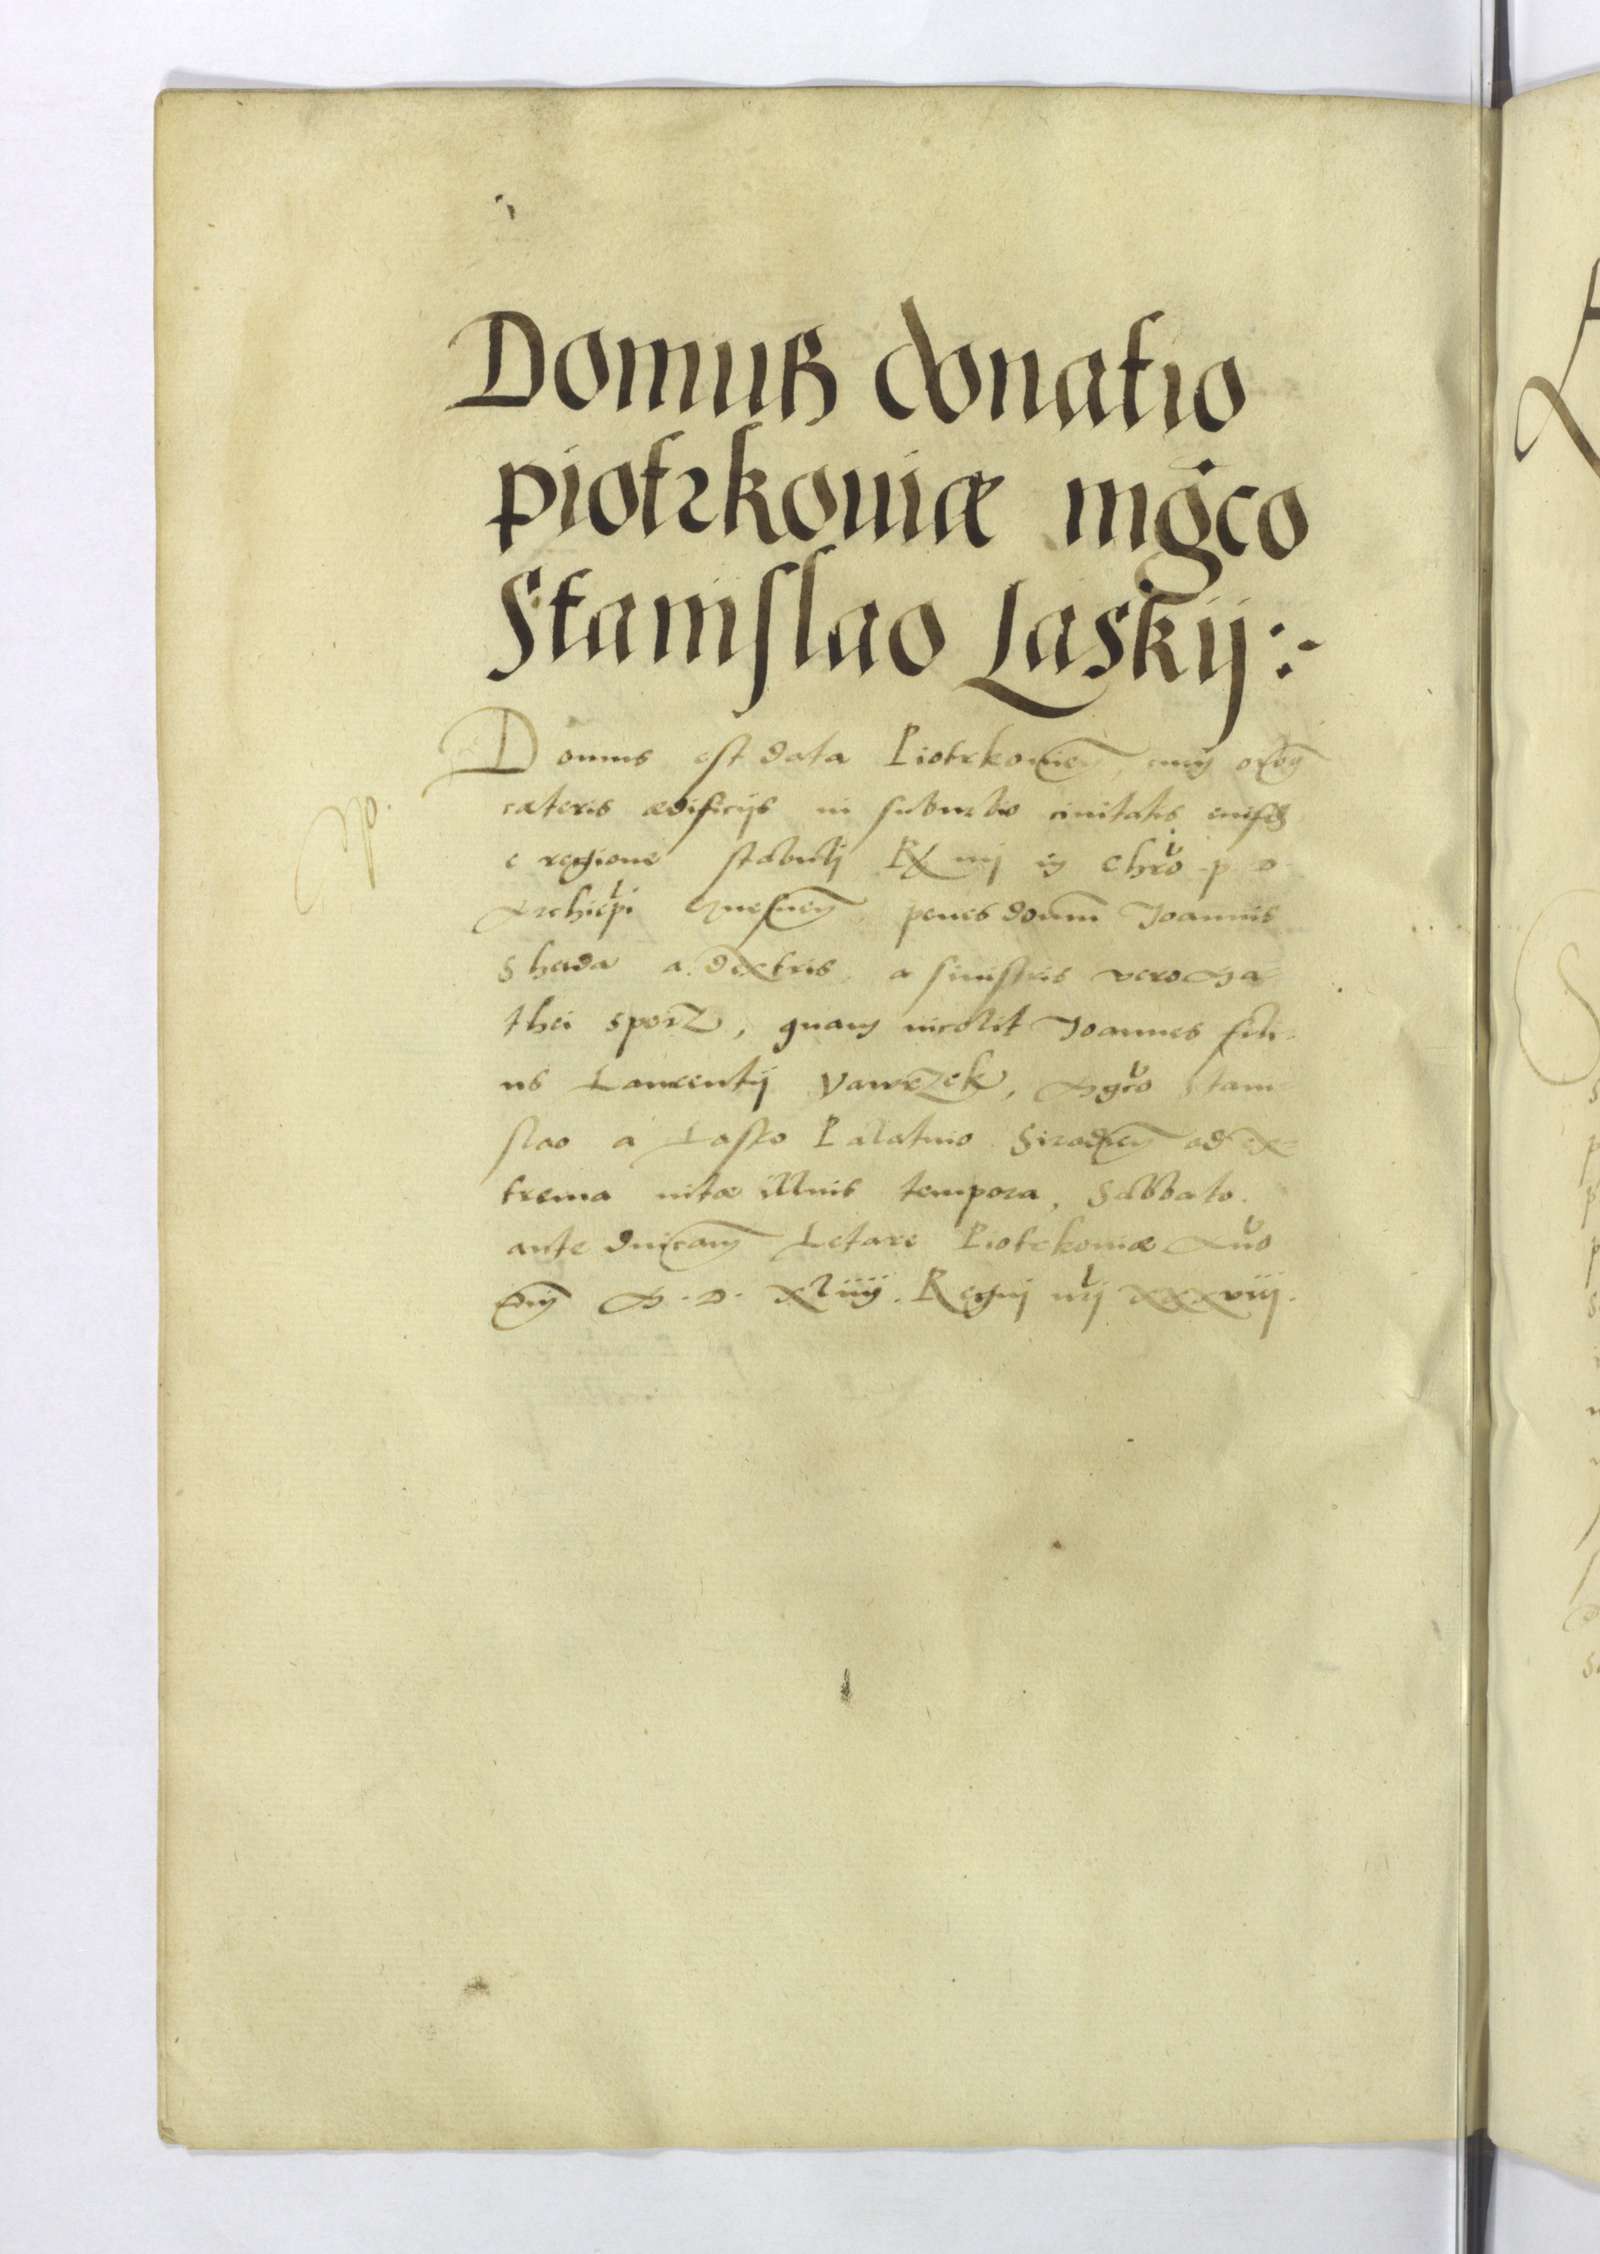 Domus donatio
piotrkoviæ mgco
Stanislao Laskij :-
Domus est data Piotrkovien, cum
cæteris ædificijs in suburbio civitatis eiusdem
e regione stabuli Rx in Chro p
Archiepi Gnesnen, penes domum Joannis
Sheda a dextris, a sinistris vero Ma
thei Sporz, quam incolit Joannes fili-
us Laurentij Vawrzek, Mgco Stani
slao a Lasko Palatino Siradien ad ex-
trema vitæ illius tempora, Sabbato
ante dnicam Letare Piotrkoviæ Anno
Dni M.D. XLiiij. Regni nri xxxviij.